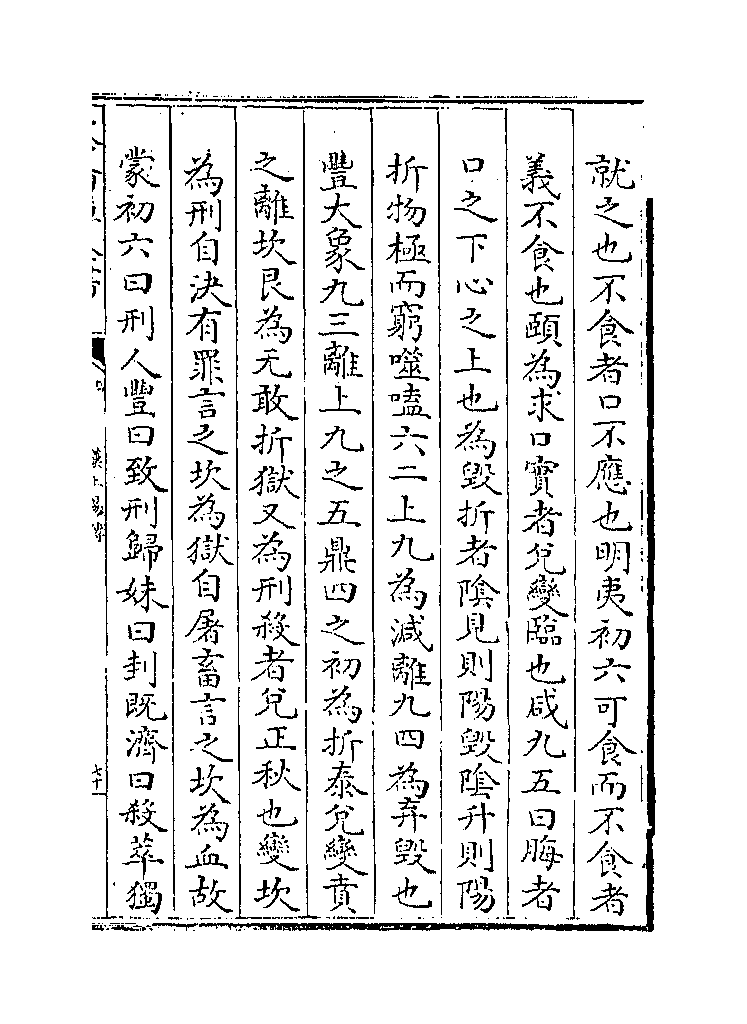 就之也不食者口不應也明夷初六可食而不食者
義不食也頤為求口實者兊變臨也咸九五曰脢者
口之下心之上也為毀折者隂見則陽毀隂升則陽
折物極而窮噬嗑六二上九為滅離九四為弃毀也
豐大象九三離上九之五鼎四之初為折泰兊變賁
之離坎艮為无敢折獄又為刑殺者兊正秋也變坎
為刑自決有罪言之坎為獄自屠畜言之坎為血故
蒙初六曰刑人豐曰致刑歸妹曰刲既濟曰殺萃獨
漢上易傳
七十